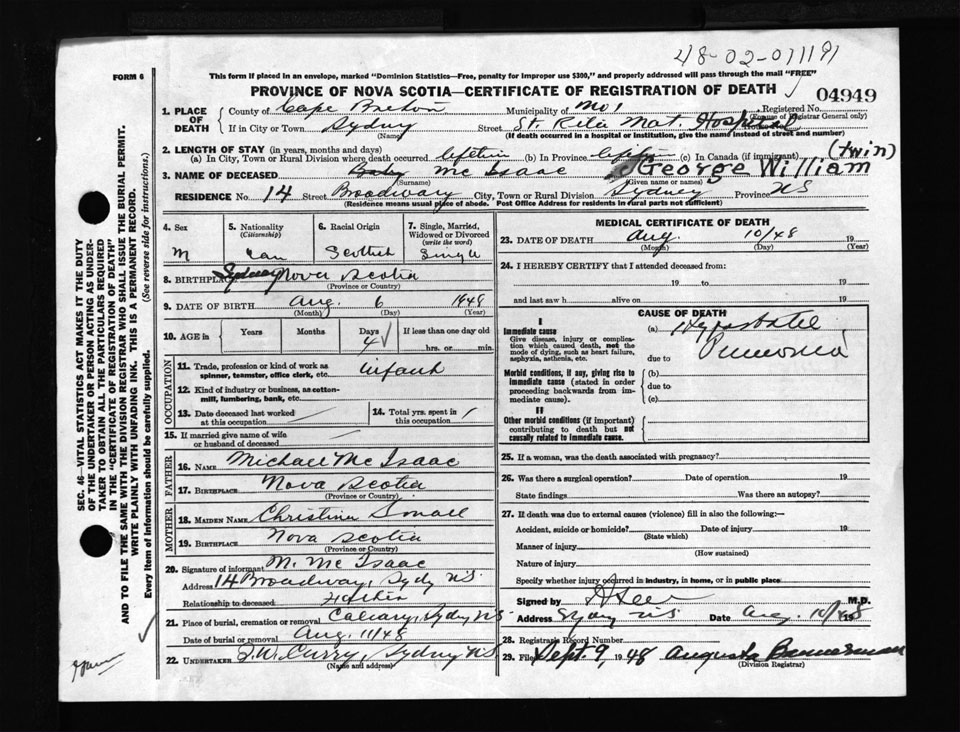 48-02-011191
FORM 6
This form if placed in an envelope, marked "Dominion Statistics—Free, penalty for improper use $300," and properly addressed will pass through the mail "FREE"
PROVINCE OF NOVA SCOTIA—CERTIFICATE OF REGISTRATION OF DEATH
04949
1. PLACE OF DEATH
County of Cape Breton Municipality of No1 Registered No.
(For use of Registrar General only)
If in City or Town Sydney Street St. Rita Mat. Hospital
(Name) (If death occurred in a hospital or institution, give the name instead of street and number)
2. LENGTH OF STAY (in years, months and days)
(a) In City, Town or Rural Division where death occurred lifetime (b) In Province (c) In Canada (if immigrant)
(twin)
3. NAME OF DECEASED Baby Mc Isaac George William
(Surname) (Given name or names)
RESIDENCE No. 14 Street Broadway City, Town or Rural Division Sydney Province NS
(Residence means usual place of abode. Post Office Address for residents in rural parts not sufficient)
4. Sex M
5. Nationality (Citizenship) Can
6. Racial Origin Scottish
7. Single, Married, Widowed or Divorced (write the word) Single
8. BIRTHPLACE Sydney Nova Scotia
(Province or Country)
9. DATE OF BIRTH Aug. 6 1948
(Month) (Day) (Year)
10. AGE in Years Months Days 4 If less than one day old
hrs. or min.
OCCUPATION
11. Trade, profession or kind of work as spinner, teamster, office clerk, etc. infant
12. Kind of industry or business, as cotton-mill, lumbering, bank, etc.
13. Date deceased last worked at this occupation
14. Total yrs. spent in this occupation
15. If married give name of wife or husband of deceased
FATHER
16. NAME Michael Mc Isaac
17. BIRTHPLACE Nova Scotia
(Province or Country)
MOTHER
18. MAIDEN NAME Christina Small
19. BIRTHPLACE Nova Scotia
(Province or Country)
20. Signature of informant M. Mc Isaac
Address 14 Broadway, Sydy NS.
Relationship to deceased Father
21. Place of burial, cremation or removal Calvary, Sydney NS
Date of burial or removal Aug. 11/48
22. UNDERTAKER J.W. Curry, Sydney NS
(Name and address)
MEDICAL CERTIFICATE OF DEATH
23. DATE OF DEATH Aug. 10/48 19
(Month) (Day) (Year)
24. I HEREBY CERTIFY that I attended deceased from:
19 to 19
and last saw h alive on 19
CAUSE OF DEATH
I
Immediate cause
Give disease, injury or complication which caused death, not the mode of dying, such as heart failure, asphyxia, asthenia, etc.
(a) Hypostatic
due to Pneumonia
Morbid conditions, if any, giving rise to immediate cause (stated in order proceeding backwards from immediate cause).
(b)
due to
(c)
II
Other morbid conditions (if important) contributing to death but not causally related to immediate cause.
25. If a woman, was the death associated with pregnancy?
26. Was there a surgical operation? Date of operation 19
State findings Was there an autopsy?
27. If death was due to external causes (violence) fill in also the following:—
Accident, suicide or homicide? Date of injury 19
(State which)
Manner of injury
(How sustained)
Nature of injury
Specify whether injury occurred in industry, in home, or in public place
Signed by M.D.
Address Sydney NS Date Aug. 10/48 19
28. Registrar's Record Number
29. Filed Sept. 9, 1948 Augusta Bannerman
(Division Registrar)
SEC. 46—VITAL STATISTICS ACT MAKES IT THE DUTY
OF THE UNDERTAKER OR PERSON ACTING AS UNDER-
TAKER TO OBTAIN ALL THE PARTICULARS REQUIRED
IN THE "CERTIFICATE OF REGISTRATION OF DEATH"
AND TO FILE THE SAME WITH THE DIVISION REGISTRAR WHO SHALL ISSUE THE BURIAL PERMIT.
WRITE PLAINLY WITH UNFADING INK. THIS IS A PERMANENT RECORD.
Every item of information should be carefully supplied. (See reverse side for instructions.)